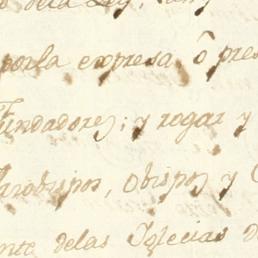 dela Ley,
por la expresa, ô pres
Fundadores; y rogar y
Arzobispos, obispos y
ente delas Iglesias d